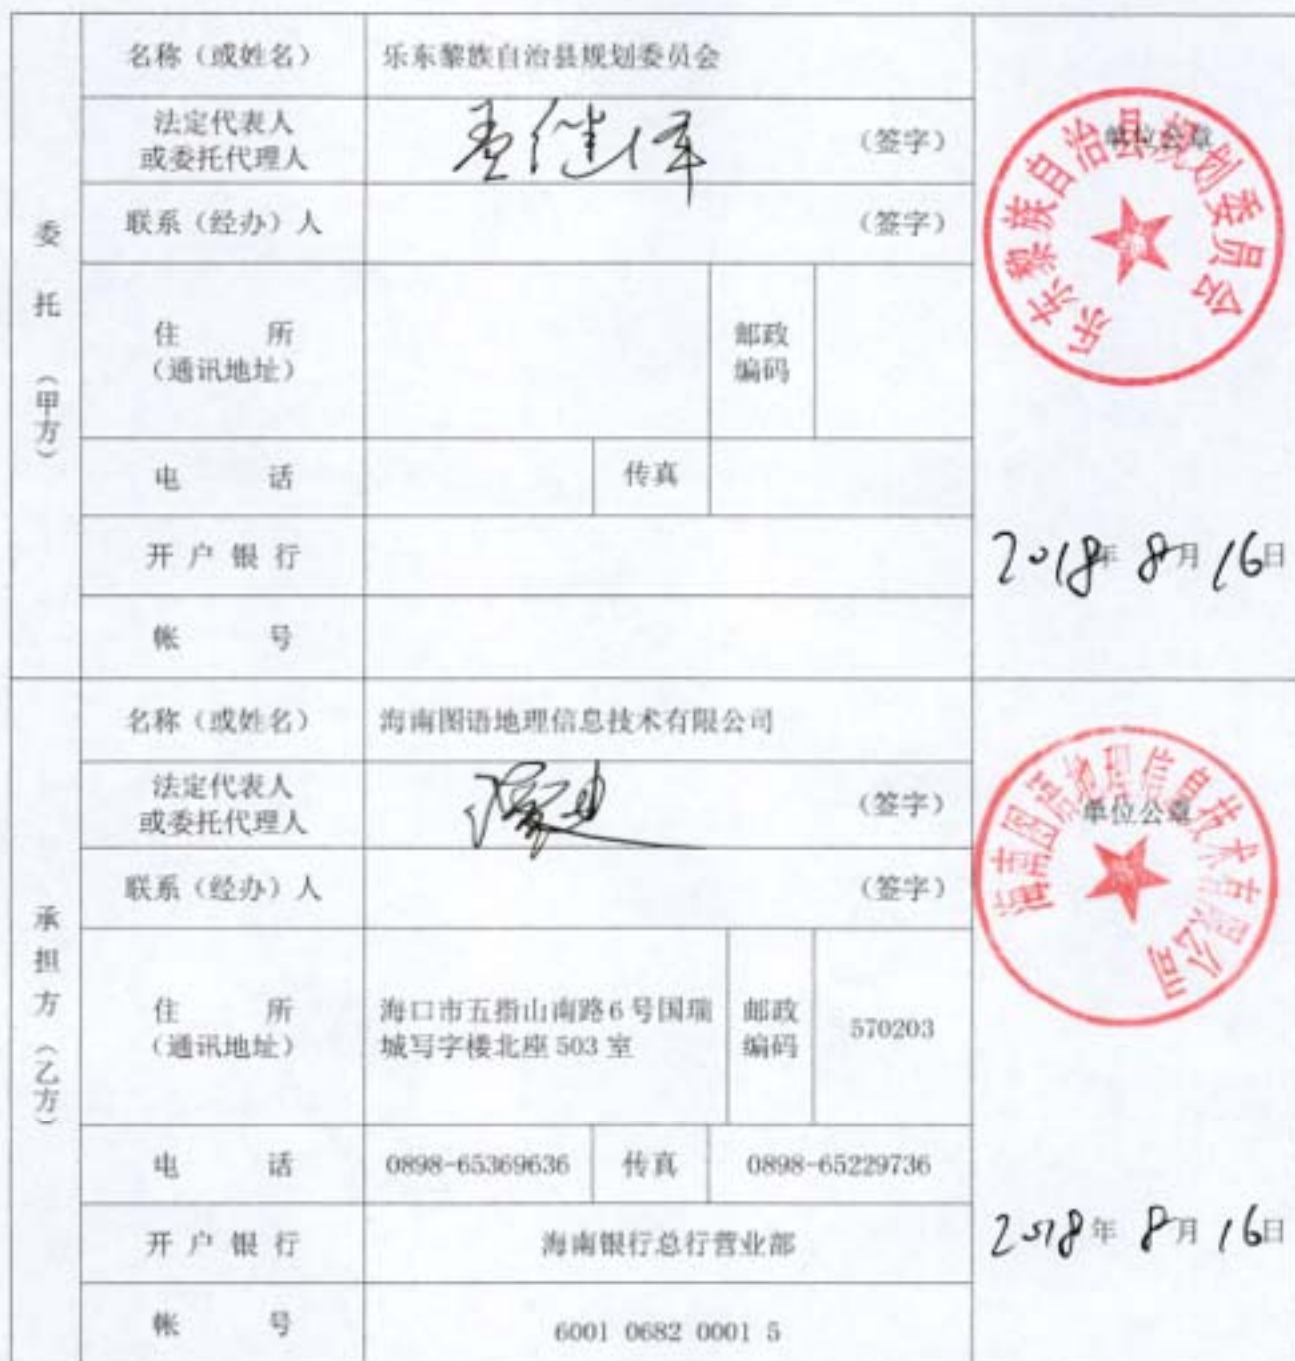 委托（甲方）
名称（或姓名）
乐东黎族自治县规划委员会
法定代表人
或委托代理人
（签字）
联系（经办）人
（签字）
住 所
（通讯地址）
邮政
编码
电 话
传真
开户银行
帐 号
单位公章
乐东黎族自治县规划委员会
2018年 8月 16日
承担方（乙方）
名称（或姓名）
海南图语地理信息技术有限公司
法定代表人
或委托代理人
（签字）
联系（经办）人
（签字）
住 所
（通讯地址）
海口市五指山南路6号国瑞
城写字楼北座503室
邮政
编码
570203
电 话
0898-65369636
传真
0898-65229736
开户银行
海南银行总行营业部
帐 号
6001 0682 0001 5
单位公章
海南图语地理信息技术有限公司
2018年 8月 16日